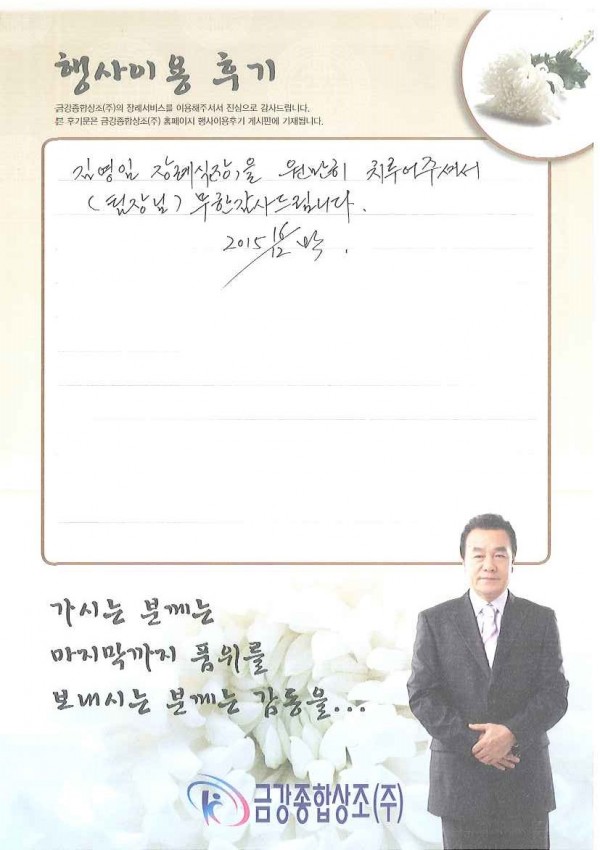 행사이용 후기
금강종합상조(주)의 장례서비스를 이용해주셔서 진심으로 감사드립니다.
본 후기문은 금강종합상조(주) 홈페이지 행사이용후기 게시판에 기재됩니다.
김영임 장례식장을 원만히 치루어주셔서
(팀장님) 무한감사드립니다.
2015 16/12
가시는 분께는
마지막까지 품위를
보내시는 분께는 감동을...
금강종합상조(주)